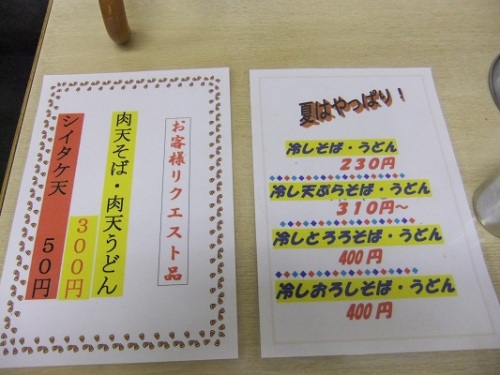 お客様リクエスト品
肉天そば・肉天うどん
３００円
シイタケ天　５０円
夏はやっぱり！
冷しそば・うどん
２３０円
冷し天ぷらそば・うどん
３１０円～
冷しとろろそば・うどん
400円
冷しおろしそば・うどん
400円